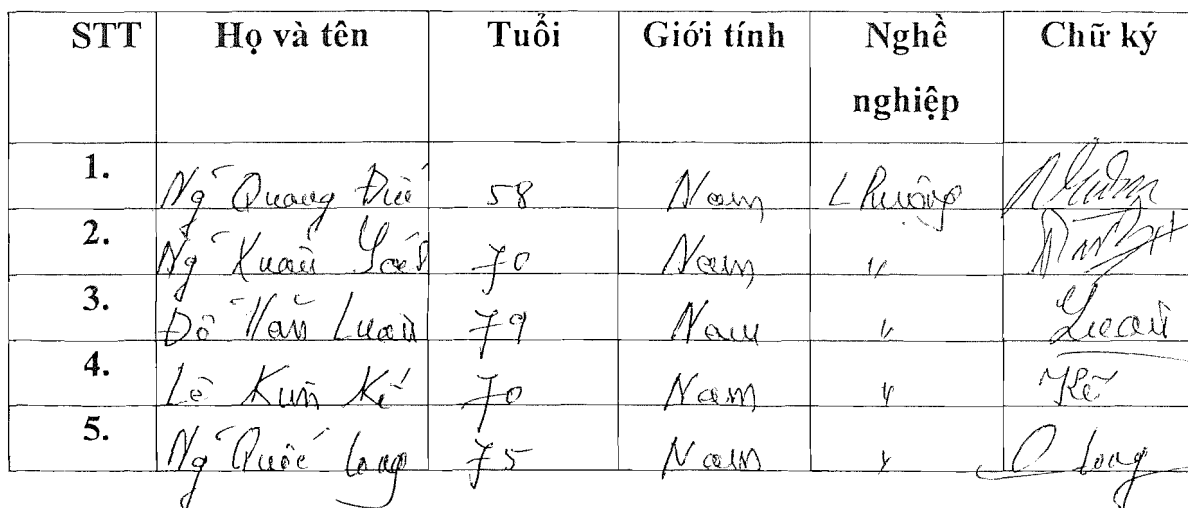 STT Họ và tên Tuổi Giới tính Nghề nghiệp Chữ ký
1. Ng~ Quang 58 Nam
2. Ng~ Xuân 70 Nam "
3. Đỗ Văn Luân 79 Nam " Luân
4. Lê Kế 70 Nam " Kế
5. Ng~ Quốc Long 75 Nam " Q Long